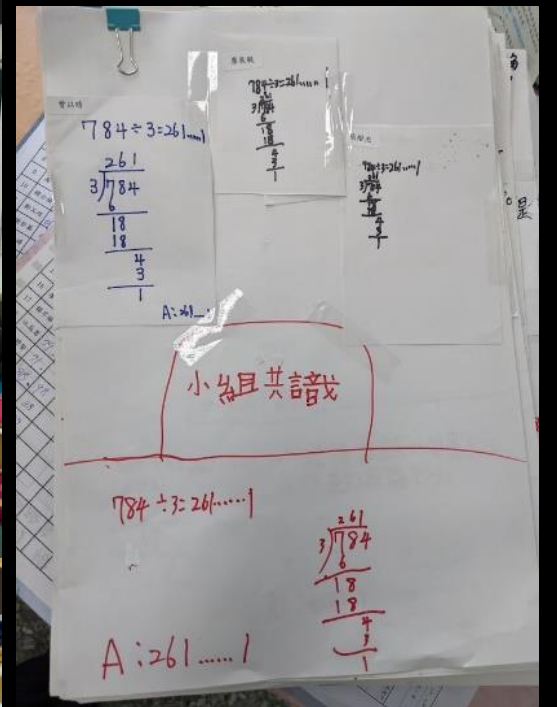 784÷3=261......1
261
3)784
6
18
18
4
3
1
A:261
784÷3=261......1
3)784
6
18
18
4
3
1
784÷3=261......1
3)784
6
18
4
3
1
小組共識
784÷3=261......1
261
3)784
6
18
18
4
3
1
A:261......1